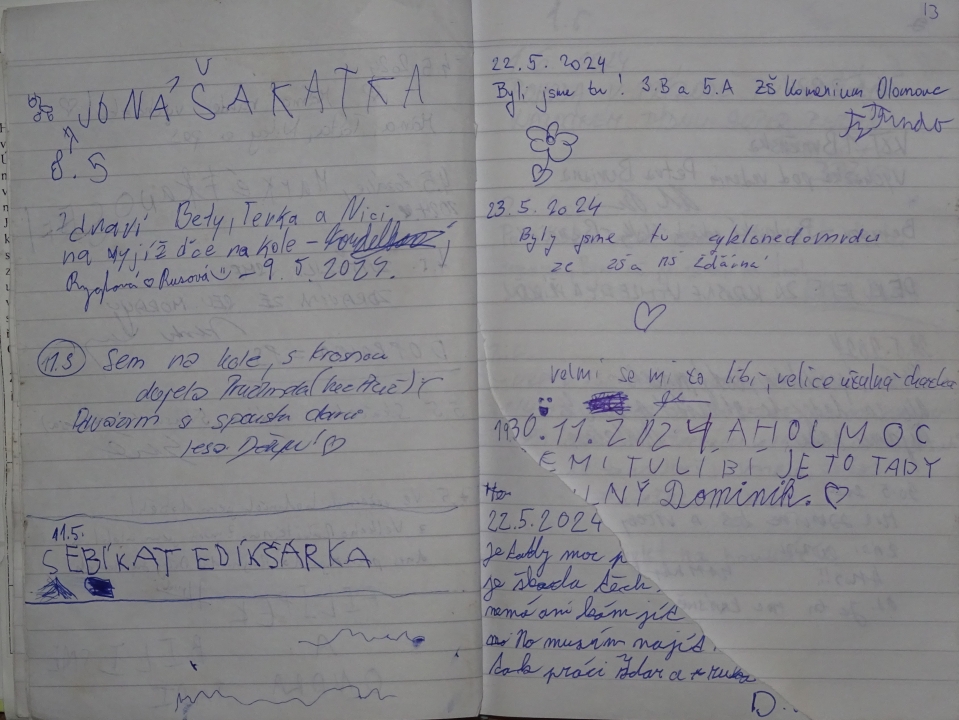 JONÁŠ A KATKA
8.5
Zdraví Bety, Terka a Nici
na vyjížďce na kole –
Rusová – 9. 5. 2024.
11.5 Sem na kole, s krosnou
dojela
si spousta
lesa
11.5.
SEBÍKAT EDÍKŠÁRKA
13
22. 5. 2024
Byli jsme tu! 3.B a 5.A ZŠ Komenium Olomouc
23.5. 2024
Byly jsme tu cyklonedomrdu
ze zš a mš Žďárná
velmi se mi to líbí, velice útulná chadka
1930.11.2024 AHOL MOC
E MI TU LÍBÍ JE TO TADY
LNÝ Dominik.
22.5.2024
je tady moc p
je škoda těch
nemá ani kam jít
No musím najít
tak práci Zdar a
D..